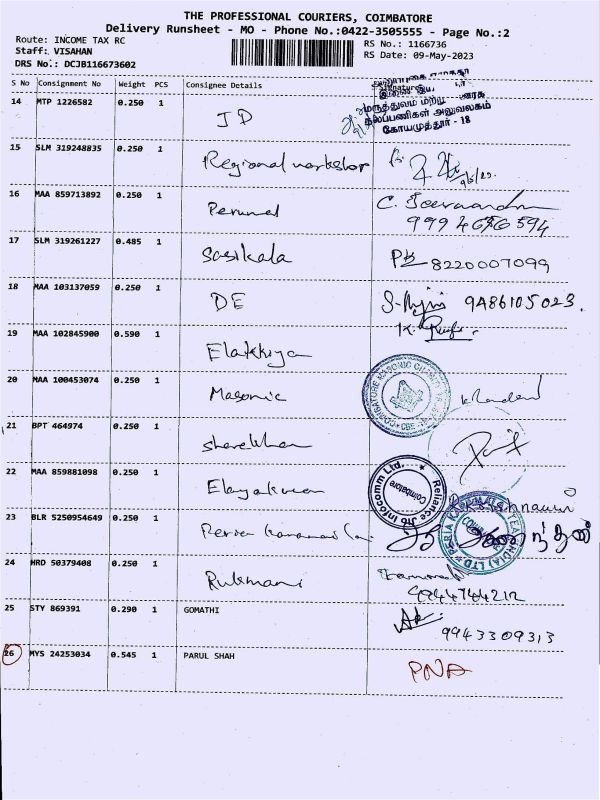 THE PROFESSIONAL COURIERS, COIMBATORE
Delivery Runsheet - MO - Phone No.:0422-3505555 - Page No.:2
Route: INCOME TAX RC
RS No.: 1166736
Staff: VISAHAN
RS Date: 09-May-2023
DRS No.: DCJB116673602
S No Consignment No Weight PCS Consignee Details Signature
மருத்துவம் மற்று
நலப்பணிகள் அலுவலகம்
கோயமுத்தூர் - 18
14 MTP 1226582 0.250 1 JD
15 SLM 319248835 0.250 1 Regional workshop
16 MAA 859713892 0.250 1 Perumal C.
17 SLM 319261227 0.485 1 Sasikala 8220007099
18 MAA 103137059 0.250 1 DE 9486105023.
19 MAA 102845900 0.590 1 Elakkiya K.
20 MAA 100453074 0.250 1 Masonic
COIMBATORE MASONIC CHARITY CBE
21 BPT 464974 0.250 1 Sharekhan
22 MAA 859881098 0.250 1
Reliance Jio Infocomm Ltd. Coimbatore
23 BLR 5250954649 0.250 1
24 HRD 50379408 0.250 1 Rukmani
9944744212
25 STY 869391 0.290 1 GOMATHI
9943309313
26 MYS 24253034 0.545 1 PARUL SHAH PNA